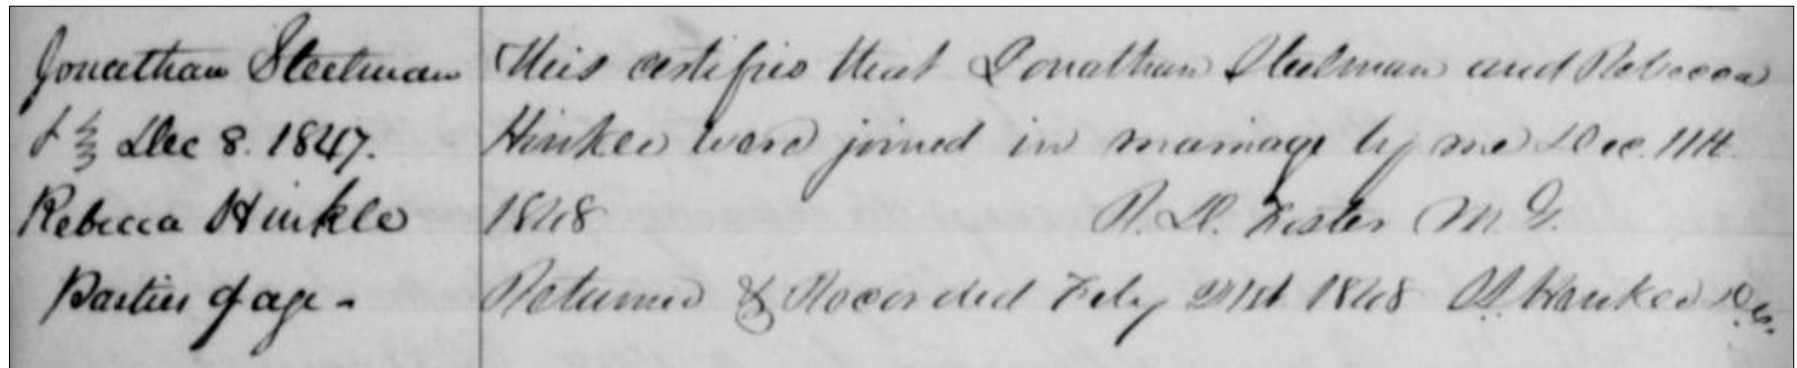 Jonathan Steelman
& Dec 8. 1847.
Rebecca Hinkle
Parties of age -
This certifies that Jonathan Steelman and Rebecca
Hinkle were joined in marriage by me Dec. 11th
1848 R. D. M. G.
Returned & Recorded Feby 21st 1848